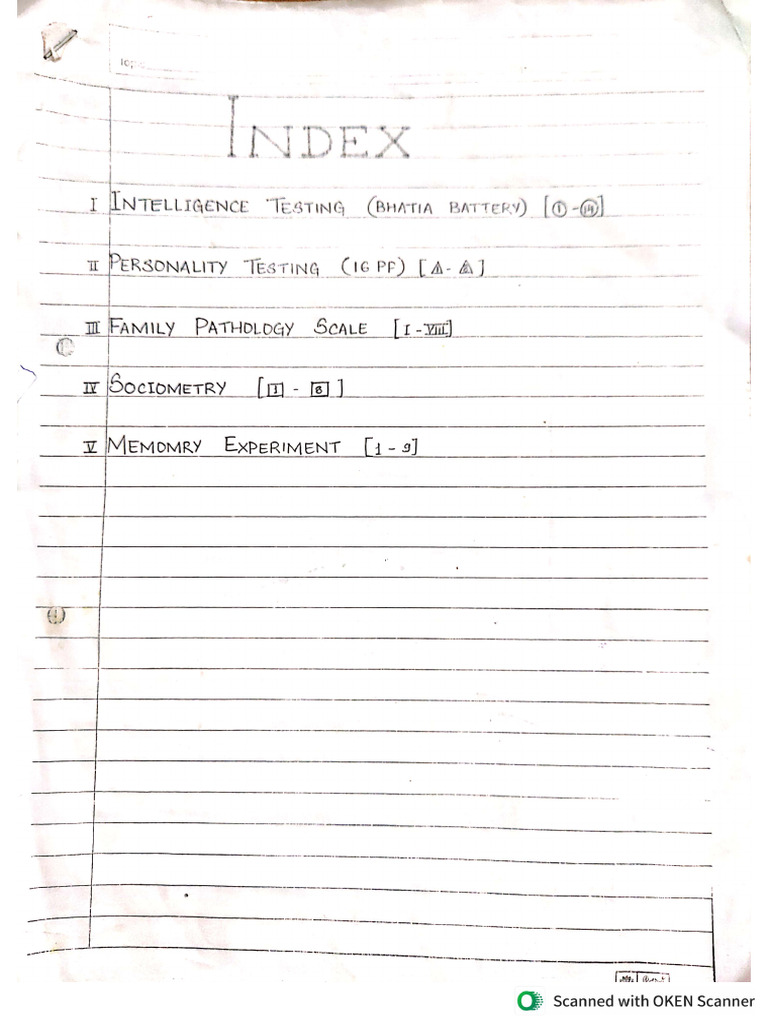 Topic
INDEX
I INTELLIGENCE TESTING (BHATIA BATTERY) [①-⑭]
II PERSONALITY TESTING (16 PF) [
III FAMILY PATHOLOGY SCALE [I-VIII]
IV SOCIOMETRY [1 - 8]
V MEMOMRY EXPERIMENT [1 - 9]
Scanned with OKEN Scanner